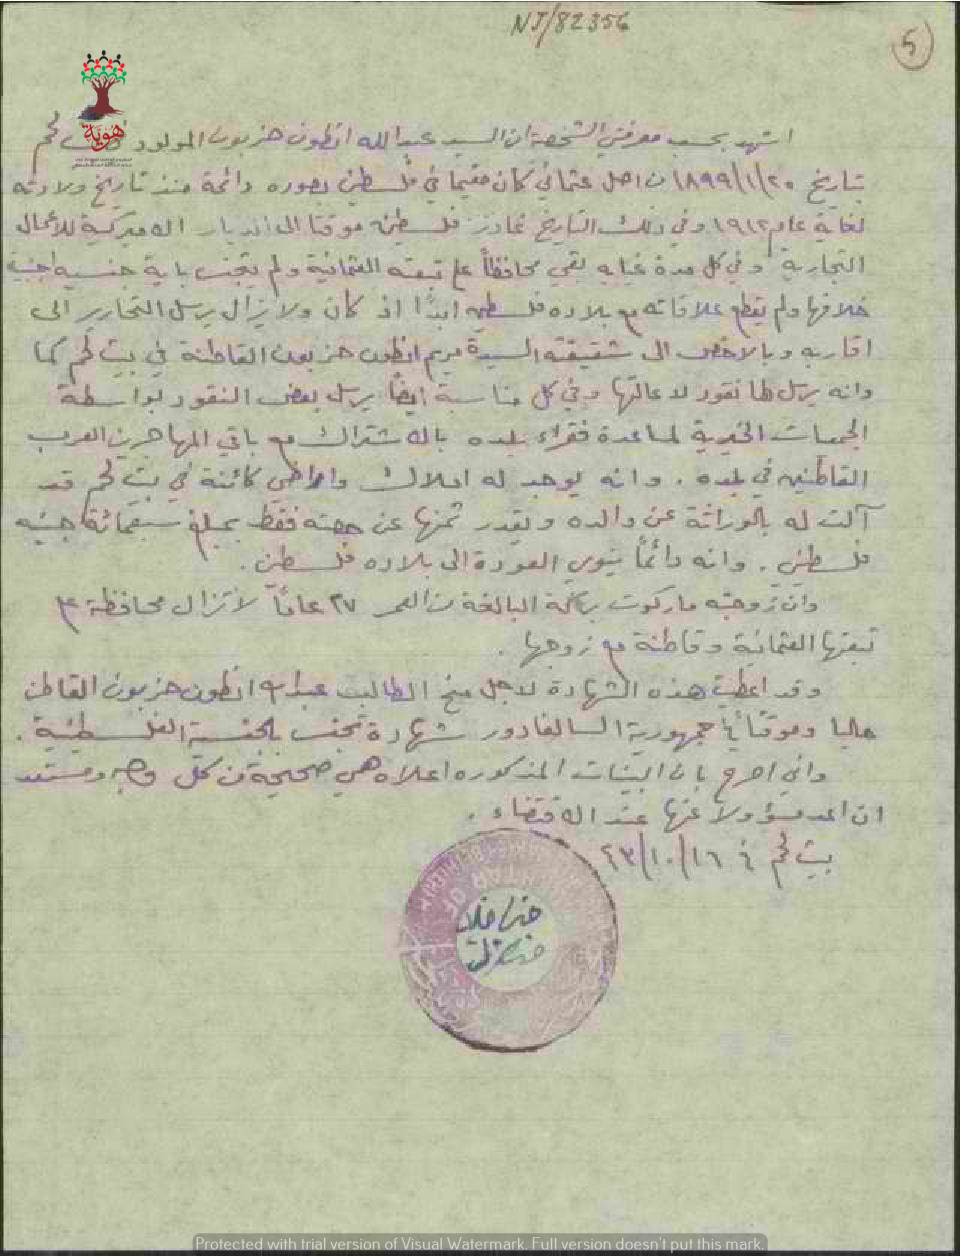 NJ/82356
5
هوية
اشهد بحسب معرفتي الشخصية ان السيد عبدالله انطون حزبون المولود لحم
بتاريخ ١٨٩٩/١/٢٠ من اصل عثماني كان مقيما في فلسطين بصورة دائمة منذ تاريخ ولادته
لغاية عام ١٩١٢ وفي ذلك التاريخ غادر فلسطين موقتا الى الديار الاميركية للاعمال
التجارية وفي كل مدة غيابه بقي محافظاً على تبعته العثمانية ولم يتجنس باية جنسية اجنبية
خلافها ولم يقطع علاقاته مع بلاده فلسطين ابداً اذ كان ولا يزال يرسل التحارير الى
اقاربه وبالاخص الى شقيقته السيدة مريم انطون حزبون القاطنة في بيت لحم كما
وانه يرسل لها نقود لاعالتها وفي كل مناسبة ايضاً يرسل بعض النقود بواسطة
الجمعيات الخيرية لمساعدة فقراء بلده بالاشتراك مع باقي المهاجرين العرب
القاطنين في بلده . وانه يوجد له املاك واراضي كائنة في بيت لحم قد
آلت له بالوراثة عن والده ويقدر ثمنها عن حصته فقط بمبلغ سبعمائة جنيه
فلسطيني . وانه دائماً ينوي العودة الى بلاده فلسطين .
وان زوجته ماركوت البالغة من العمر ٢٧ عاماً لا تزال محافظة على
تبعتها العثمانية وقاطنة مع زوجها .
وقد اعطيت هذه الشهادة لاجل منح الطالب عبدالله انطون حزبون القاطن
حاليا وموقتاً في جمهورية السالفادور شهادة تجنس بالجنسية الفلسطينية .
واني اصرح بان البينات المذكورة اعلاه هي صحيحة من كل وجه ومستعد
ان اعد مسؤولا عنها عند الاقتضاء .
بيت لحم في ١٦/١٠/
MUKHTAR OF
Protected with trial version of Visual Watermark. Full version doesn't put this mark.